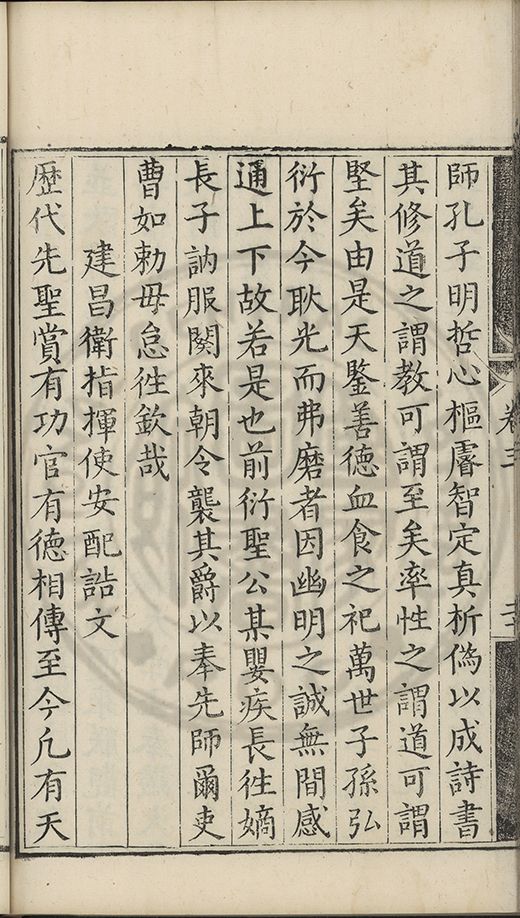 師孔子明哲心樞睿智定真析僞以成詩書
其修道之謂教可謂至矣率性之謂道可謂
堅矣由是天鑒善德血食之祀萬世子孫弘
衍於今耿光而弗磨者因幽明之誠無間感
通上下故若是也前衍聖公某嬰疾長徃嫡
長子訥服闋來朝令襲其爵以奉先師爾吏
曹如勅毋怠徃欽哉
建昌衛指揮使安配誥文
歷代先聖賞有功官有德相傳至今凢有天
卷三